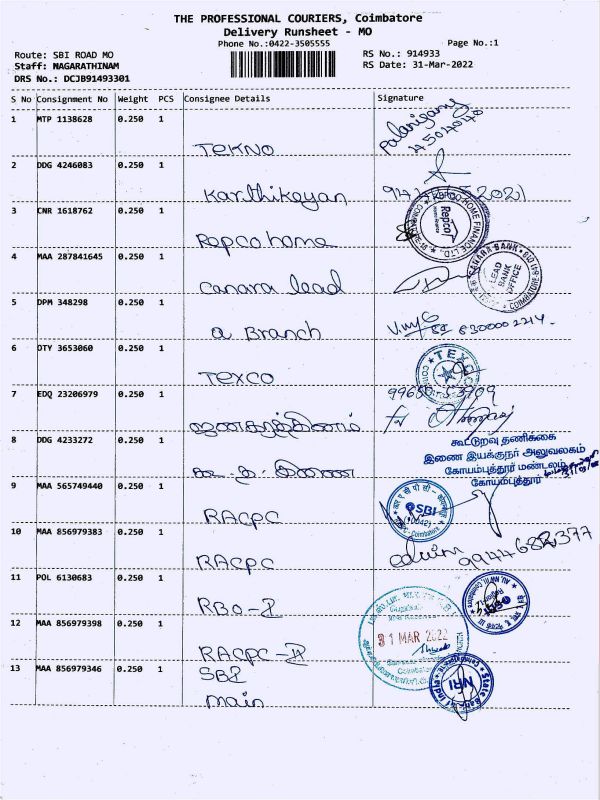 THE PROFESSIONAL COURIERS, Coimbatore
Delivery Runsheet - MO
Phone No.:0422-3505555
Page No.:1
Route: SBI ROAD MO
RS No.: 914933
Staff: NAGARATHINAM
RS Date: 31-Mar-2022
DRS No.: DCJB91493301
S No Consignment No Weight PCS Consignee Details Signature
1 MTP 1138628 0.250 1
TEKNO
2 DDG 4246083 0.250 1
Karthikeyan
3 CNR 1618762 0.250 1
Repco home
REPCO HOME FINANCE LTD.
Repco
4 MAA 287841645 0.250 1
Canara lead
CANARA BANK
LEAD BANK OFFICE
COIMBATORE
5 DPM 348298 0.250 1
a Branch
6 OTY 3653060 0.250 1
Texco
TEXCO
7 EDQ 23206979 0.250 1
8 DDG 4233272 0.250 1
கூட்டுறவு தணிக்கை
இணை இயக்குநர் அலுவலகம்
கோயம்புத்தூர் மண்டலம்
கோயம்புத்தூர்
9 MAA 565749440 0.250 1
RACPC
SBI
Coimbatore
10 MAA 856979383 0.250 1
RACPC
edwin
9944682377
11 POL 6130683 0.250 1
RBO-I
12 MAA 856979398 0.250 1
RACPC-II
31 MAR 2022
13 MAA 856979346 0.250 1
SBI
main
NRI